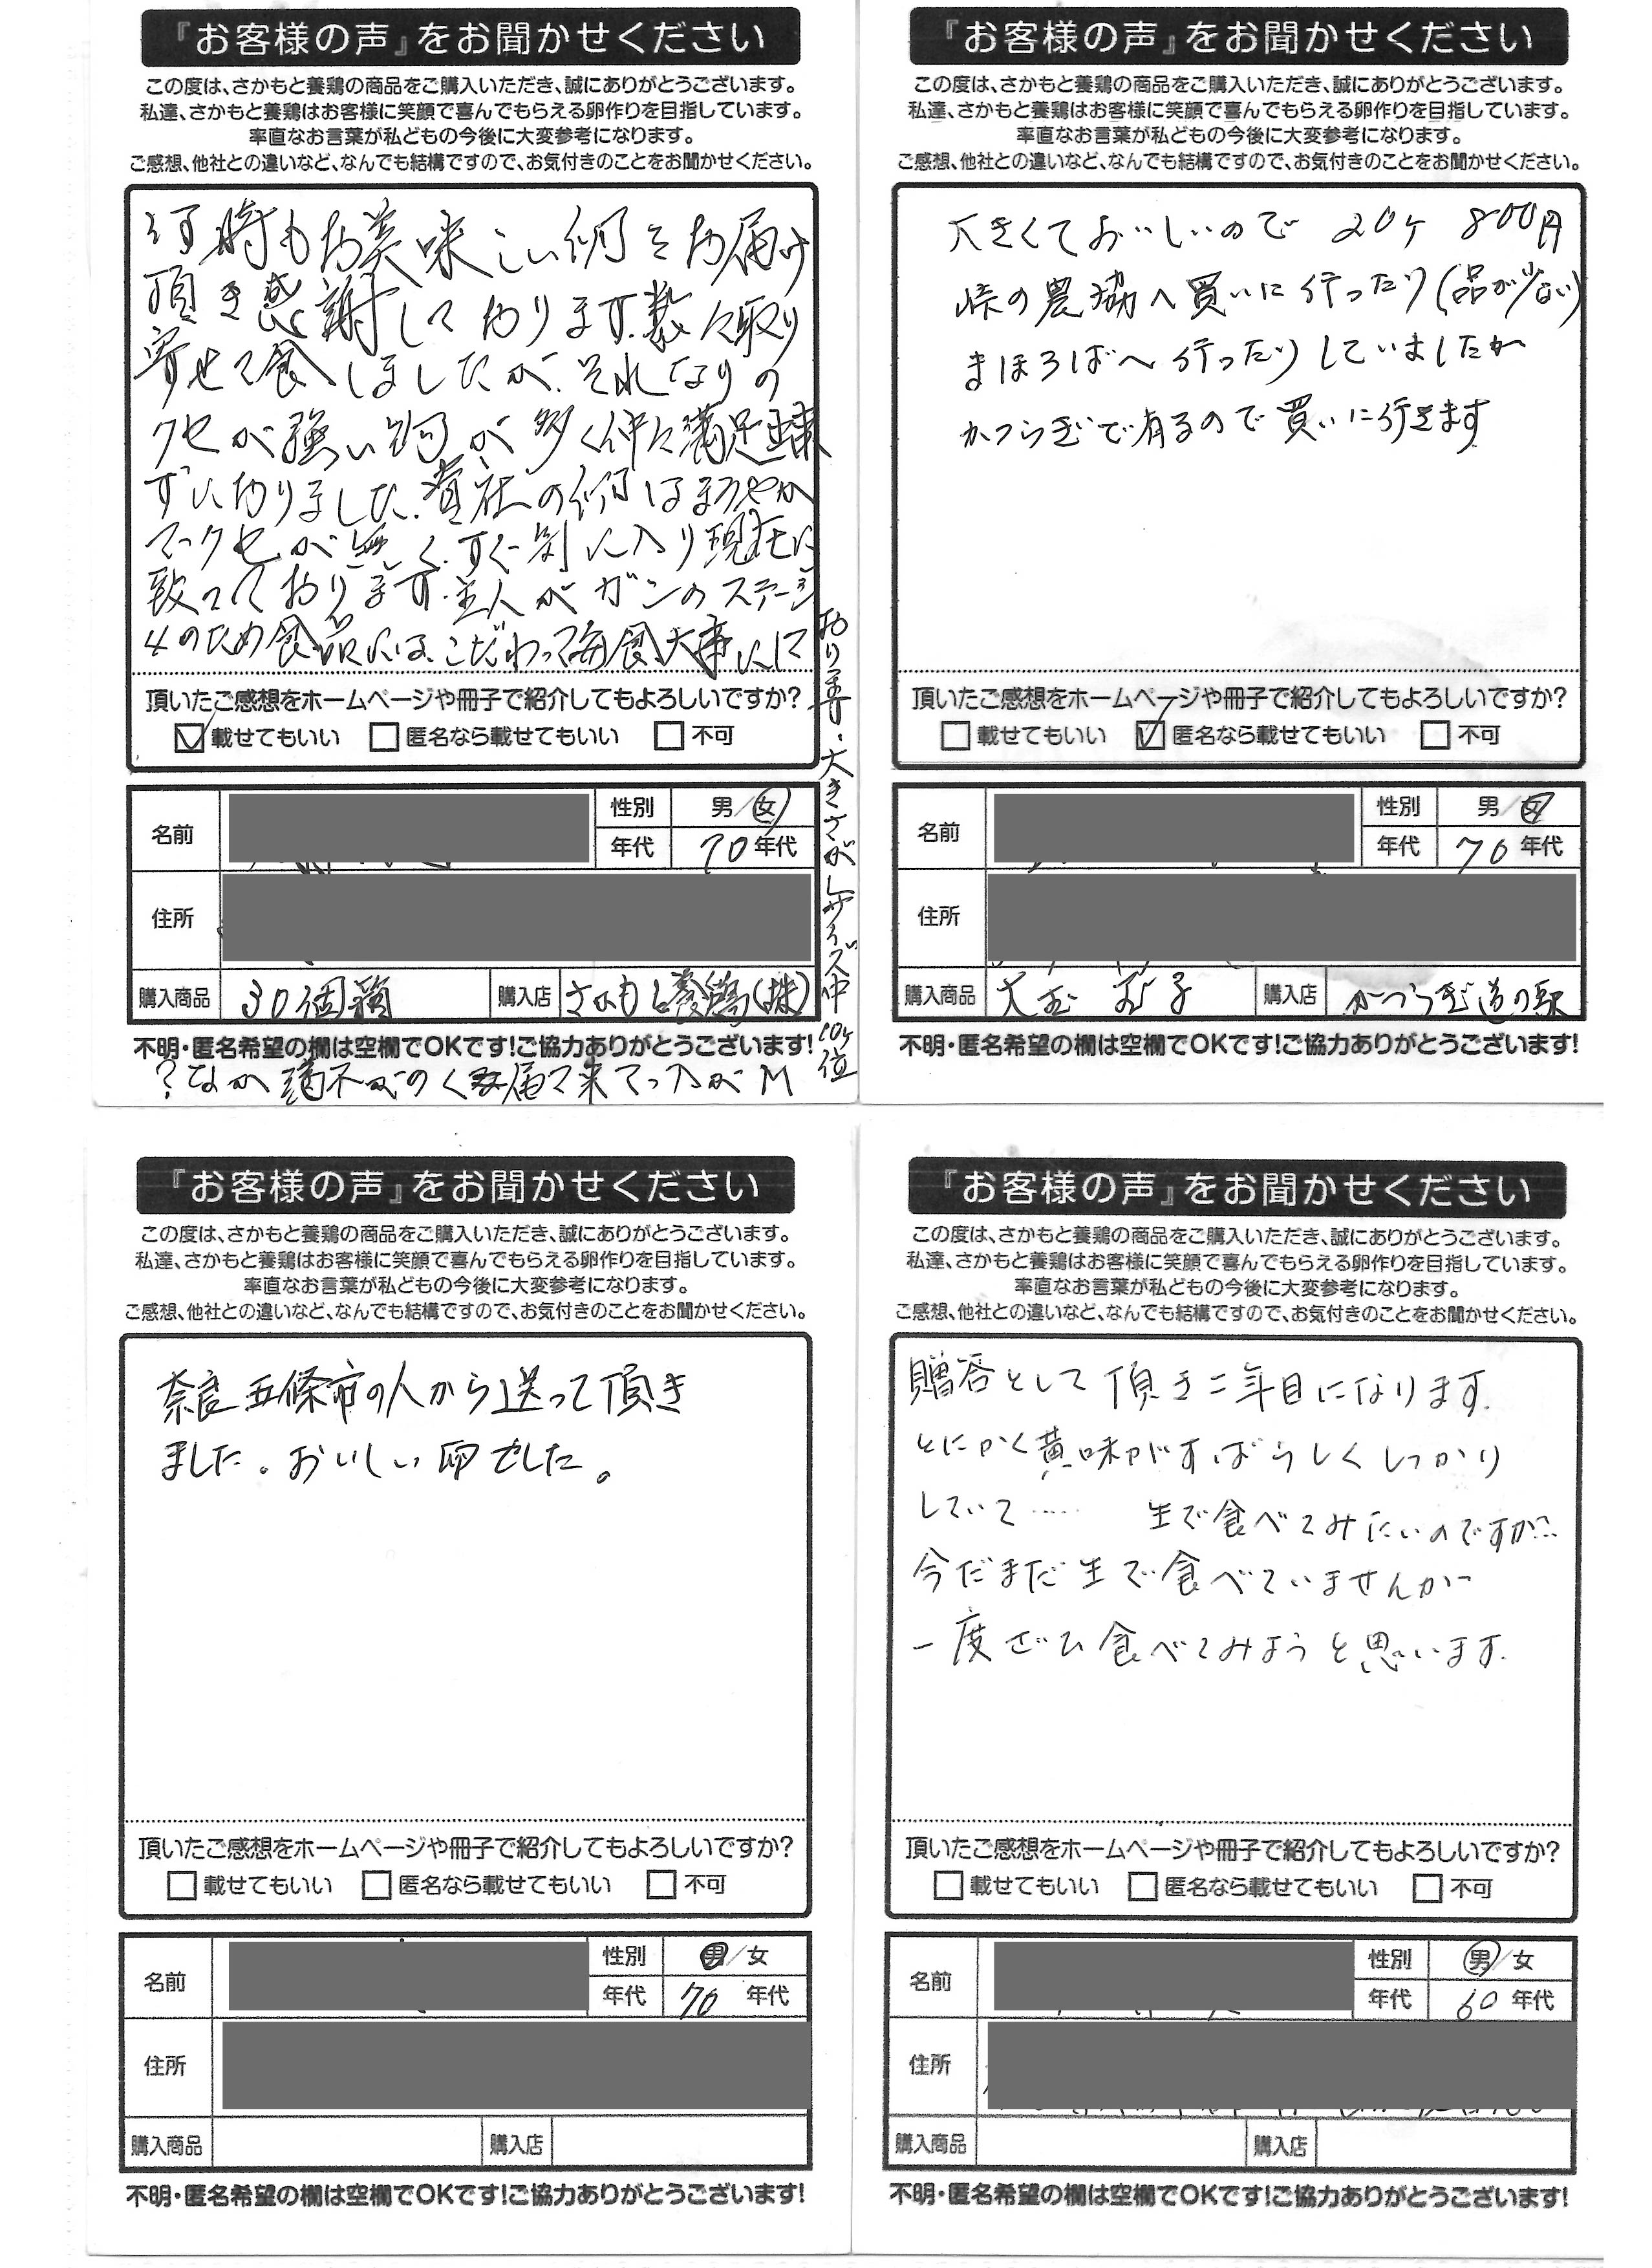 『お客様の声』をお聞かせください
この度は、さかもと養鶏の商品をご購入いただき、誠にありがとうございます。
私達、さかもと養鶏はお客様に笑顔で喜んでもらえる卵作りを目指しています。
率直なお言葉が私どもの今後に大変参考になります。
ご感想、他社との違いなど、なんでも結構ですので、お気付きのことをお聞かせください。
何時もお美味しい卵をお届け
頂き感謝しております.数々取り
寄せて食しましたが、それなりの
クセが強い卵が多く仲々満足出来
ずにおりました.貴社の卵はまろやか
でクセが無く.すぐ気に入り現在に
至っております.主人がガンのステージ
4のため食品にはこだわって毎食大事にして
おります.大きさがLサイズ中10ケ位
頂いたご感想をホームページや冊子で紹介してもよろしいですか?
載せてもいい 匿名なら載せてもいい 不可
名前 性別 男/女
年代 70年代
住所
購入商品 30個箱 購入店 さかもと養鶏(株)
不明・匿名希望の欄は空欄でOKです!ご協力ありがとうございます!
?なか 届 来 が M
『お客様の声』をお聞かせください
この度は、さかもと養鶏の商品をご購入いただき、誠にありがとうございます。
私達、さかもと養鶏はお客様に笑顔で喜んでもらえる卵作りを目指しています。
率直なお言葉が私どもの今後に大変参考になります。
ご感想、他社との違いなど、なんでも結構ですので、お気付きのことをお聞かせください。
大きくておいしいので 20ケ 800円
峠の農協へ買いに行ったり(品が少ない)
まほろばへ行ったりしていましたが
かつらぎで有るので買いに行きます
頂いたご感想をホームページや冊子で紹介してもよろしいですか?
載せてもいい 匿名なら載せてもいい 不可
名前 性別 男/女
年代 70年代
住所
購入商品 大玉 玉子 購入店 かつらぎ道の駅
不明・匿名希望の欄は空欄でOKです!ご協力ありがとうございます!
『お客様の声』をお聞かせください
この度は、さかもと養鶏の商品をご購入いただき、誠にありがとうございます。
私達、さかもと養鶏はお客様に笑顔で喜んでもらえる卵作りを目指しています。
率直なお言葉が私どもの今後に大変参考になります。
ご感想、他社との違いなど、なんでも結構ですので、お気付きのことをお聞かせください。
奈良五條市の人から送って頂き
ました。おいしい卵でした。
頂いたご感想をホームページや冊子で紹介してもよろしいですか?
載せてもいい 匿名なら載せてもいい 不可
名前 性別 男/女
年代 70年代
住所
購入商品 購入店
不明・匿名希望の欄は空欄でOKです!ご協力ありがとうございます!
『お客様の声』をお聞かせください
この度は、さかもと養鶏の商品をご購入いただき、誠にありがとうございます。
私達、さかもと養鶏はお客様に笑顔で喜んでもらえる卵作りを目指しています。
率直なお言葉が私どもの今後に大変参考になります。
ご感想、他社との違いなど、なんでも結構ですので、お気付きのことをお聞かせください。
贈答として頂き二年目になります.
とにかく黄味がすばらしくしっかり
していて…… 生で食べてみたいのですが…
今だまだ生で食べていませんがー
一度ぜひ食べてみようと思います.
頂いたご感想をホームページや冊子で紹介してもよろしいですか?
載せてもいい 匿名なら載せてもいい 不可
名前 性別 男/女
年代 60年代
住所
購入商品 購入店
不明・匿名希望の欄は空欄でOKです!ご協力ありがとうございます!